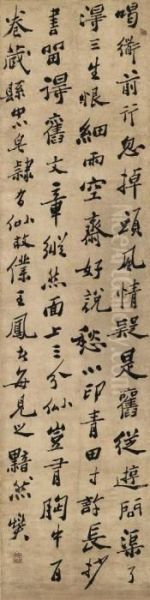 喝衛前行忽掉頭風情疑是舊從遊問渠了
得三生恨細雨空齋好說愁小印青田寸許長抄
書留得舊文章縱然面上三分似豈有胸中百
卷藏縣中皂隸有似故僕王鳳者每見之黯然燮